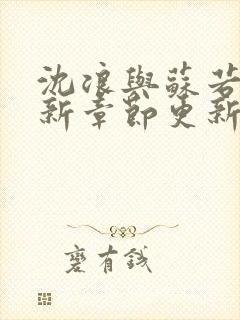 沈浪與蘇若
新章節更新
蹇有錢